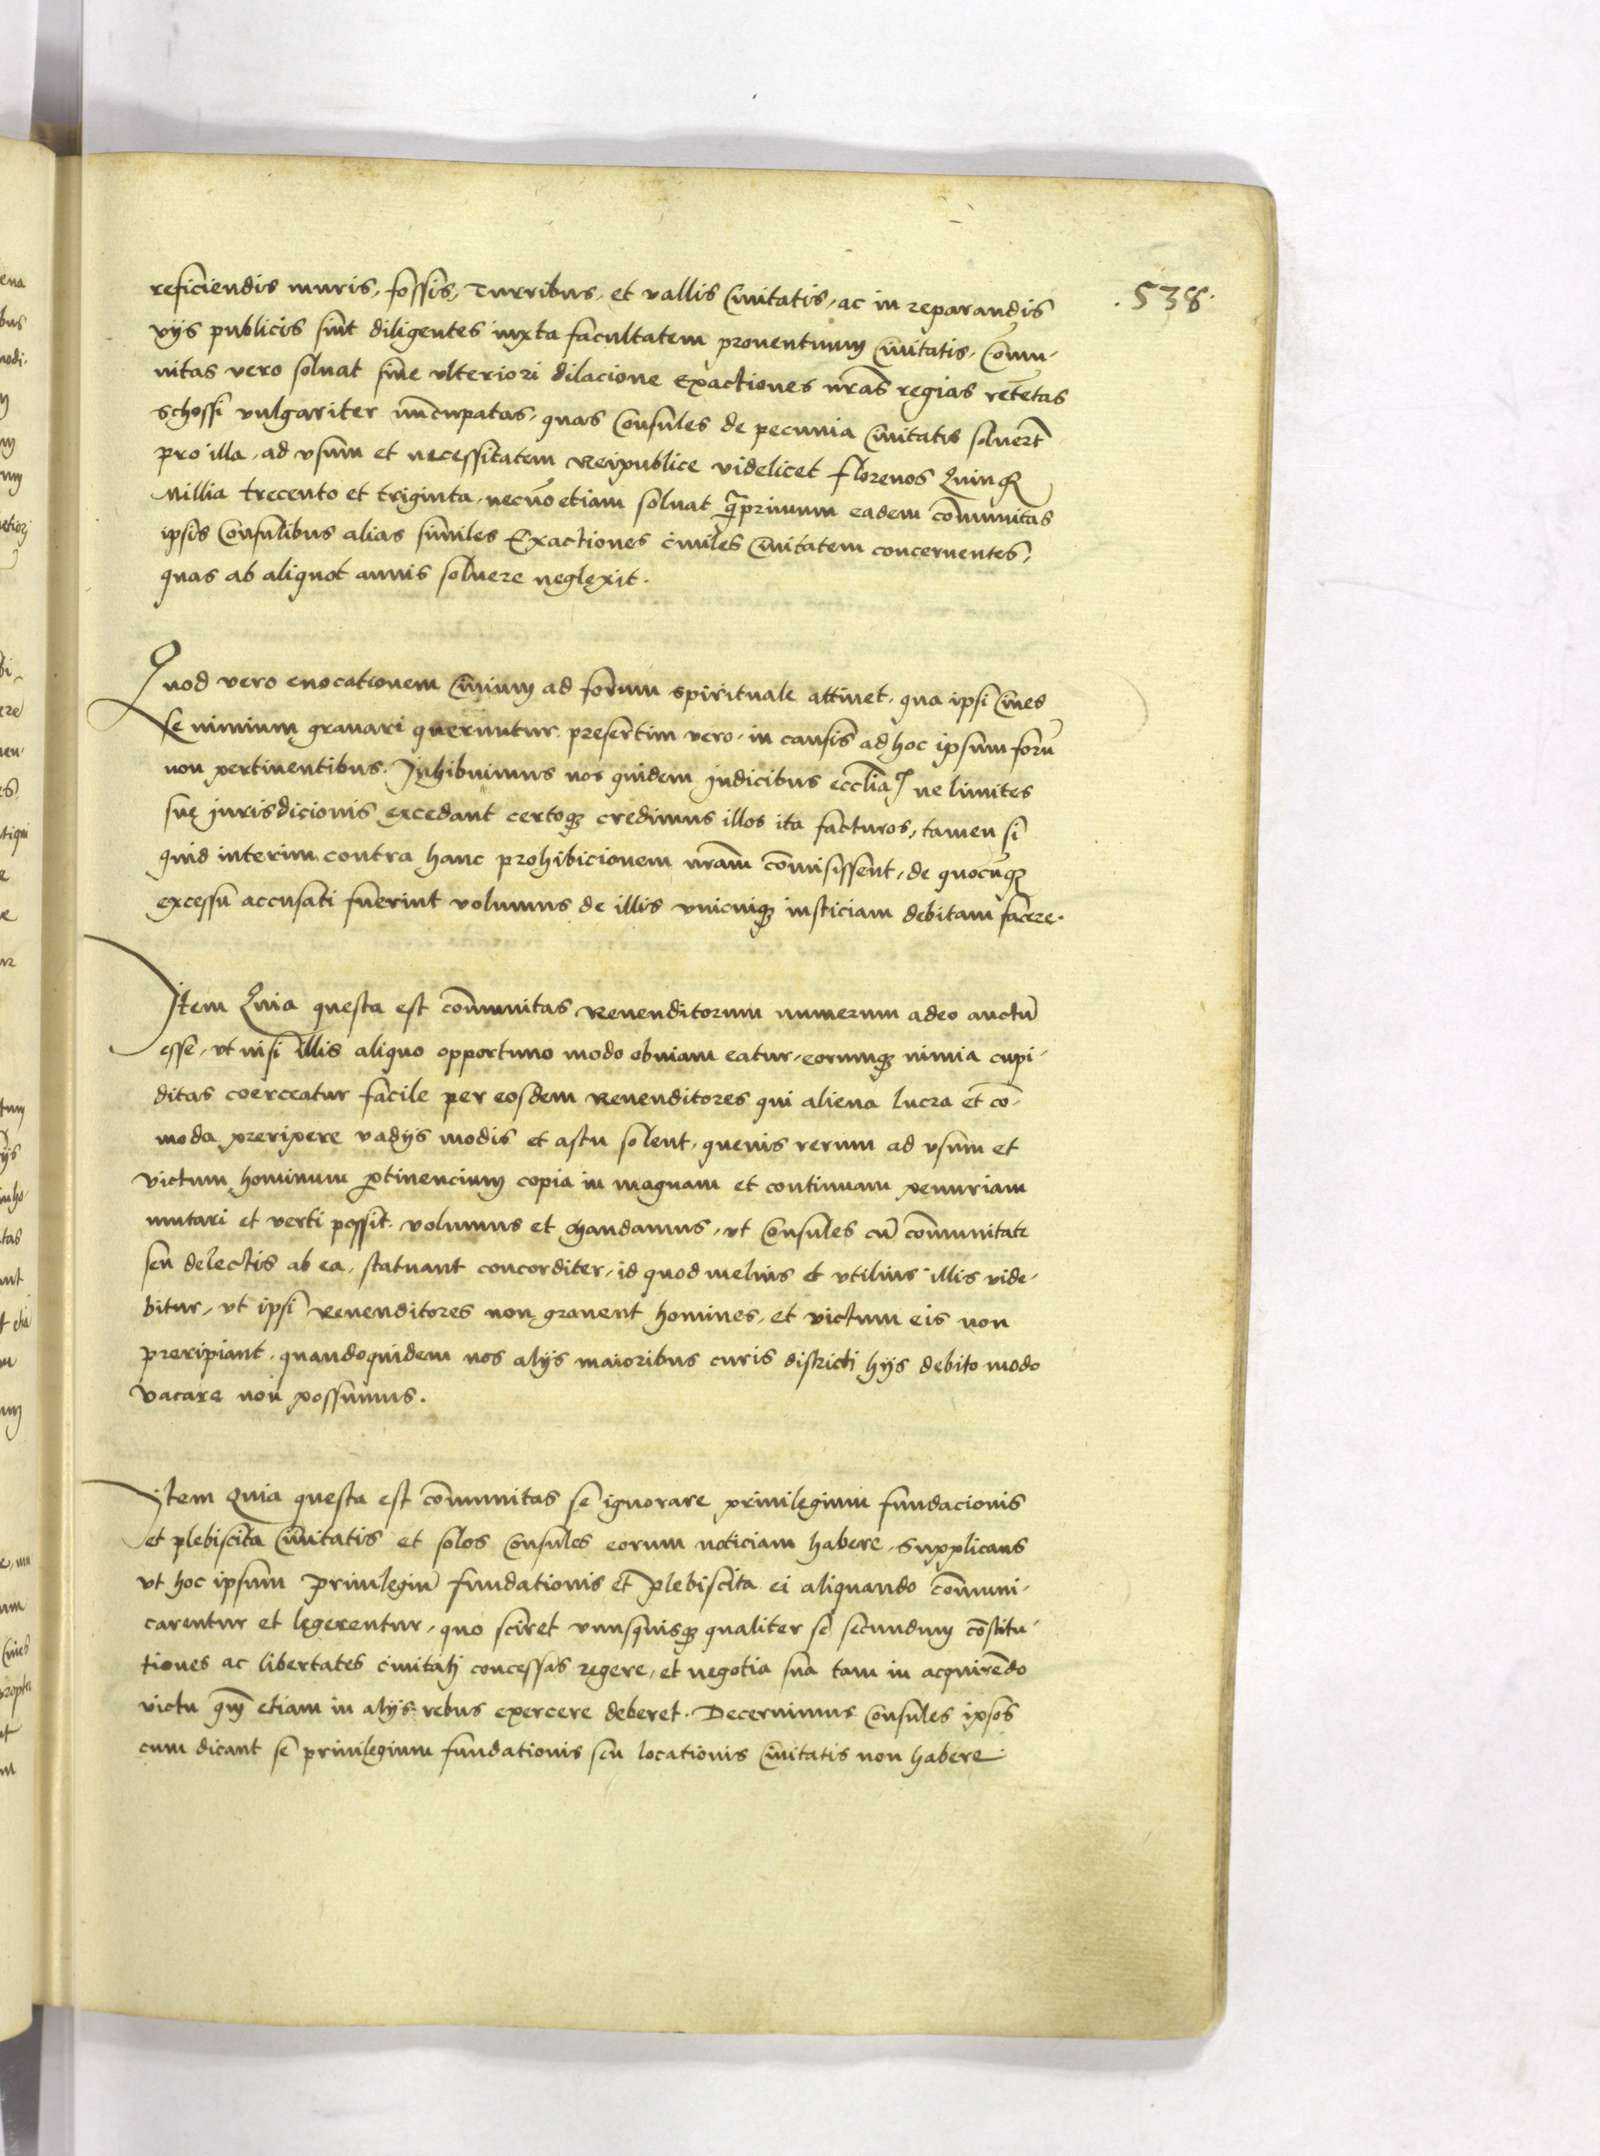 .538.
reficiendis muris, fossis, Turribus, et vallis Ciuitatis, ac in reparandis
vijs publicis sint diligentes iuxta facultatem prouentuum Ciuitatis, Com̃u-
nitas vero soluat sine vlteriori dilacione Exactiones nr̃as regias ret̃etas
schossi vulgariter nũcupatas, quas Consules de pecunia Ciuitatis soluer̃t
pro illa, ad vsum et necessitatem Reipublice videlicet florenos Quinqꝫ
Millia trecento et triginta, necñoetiam soluat q̃primum eadem com̃unitas
ipsis Consulibus alias similes Exactiones ciuiles Ciuitatem concernentes,
quas ab aliquot annis soluere neglexit.
Quod vero euocationem Ciuium ad forum spirituale attinet, qua ipsi Ciues
se nimium grauari queruntur, presertim vero, in causis ad hoc ipsum forũ
non pertinentibus. Inhibuimus nos quidem Iudicibus eccl̃iaꝝ ne limites
suę Iurisdicionis excedant certoqꝫ credimus illos ita facturos, tamen si
quid interim contra hanc prohibicionem nr̃am com̃isissent, de quocũqꝫ
excessu accusati fuerint volumus de illis vnicuiqꝫ iusticiam debitam facere.
Item Quia questa est com̃unitas Reuenditorum numerum adeo auctũ
esse, vt nisi illis aliquo opportuno modo obuiam eatur, eorumqꝫ nimia cupi-
ditas coerceatur facile per eosdem Reuenditores qui aliena lucra et cõ-
moda preripere vadijs modis et astu solent, queuis rerum ad vsum et
victum hominum ꝑtinencium copia in magnam et continuam penuriam
mutari et verti possit. volumus et Mandamus, vt Consules cũ com̃unitate
seu delectis ab ea, statuant concorditer, id quod melius et vtilius illis vide-
bitur, vt ipsi Reuenditores non grauent homines, et victum eis non
preripiant, quandoquidem nos alijs maioribus curis districti hijs debito modo
vacare non possumus.
Item Quia questa est com̃unitas se ignorare priuilegium fundacionis
et plebiscita Ciuitatis et solos Consules eorum noticiam habere, supplicans
vt hoc ipsum Priuilegiũ fundationis et plebiscita ei aliquando com̃uni-
carentur et legerentur, quo sciret vnusquisqꝫ qualiter se secundum cõstitu-
tiones ac libertates ciuitati concessas regere, et negotia sua tam in acquirẽdo
victu q̃m etiam in alijs rebus exercere deberet. Decernimus Consules ipsos
cum dicant se priuilegium fundationis seu locationis Ciuitatis non habere